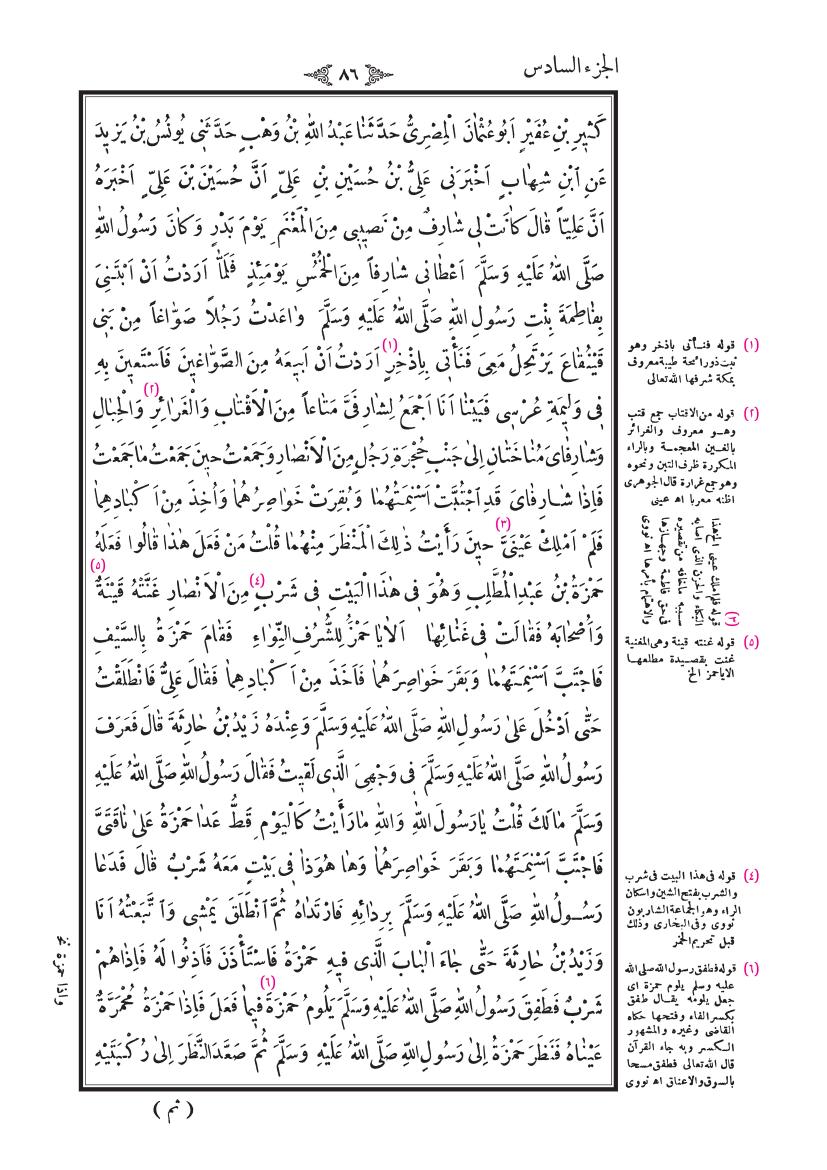 الجزء السادس
٨٦
كَثِيرِ بْنِ عُفَيْرٍ اَبُو عُثْمَانَ الْمِصْرِىُّ حَدَّثَنَا عَبْدُ اللّٰهِ بْنُ وَهْبٍ حَدَّثَنِى يُونُسُ بْنُ يَزِيدَ
عَنِ ابْنِ شِهَابٍ اَخْبَرَنِى عَلِىُّ بْنُ حُسَيْنِ بْنِ عَلِىٍّ اَنَّ حُسَيْنَ بْنَ عَلِىٍّ اَخْبَرَهُ
اَنَّ عَلِيّاً قَالَ كَانَتْ لِى شَارِفٌ مِنْ نَصِيبِى مِنَ الْمَغْنَمِ يَوْمَ بَدْرٍ وَكَانَ رَسُولُ اللّٰهِ
صَلَّى اللّٰهُ عَلَيْهِ وَسَلَّمَ اَعْطَانِى شَارِفاً مِنَ الْخُمُسِ يَوْمَئِذٍ فَلَمَّا اَرَدْتُ اَنْ اَبْتَنِىَ
بِفَاطِمَةَ بِنْتِ رَسُولِ اللّٰهِ صَلَّى اللّٰهُ عَلَيْهِ وَسَلَّمَ وَاعَدْتُ رَجُلاً صَوَّاغاً مِنْ بَنِى
قَيْنُقَاعَ يَرْتَحِلُ مَعِىَ فَنَأْتِى بِاِذْخِرٍ (١) اَرَدْتُ اَنْ اَبِيعَهُ مِنَ الصَّوَّاغِينَ فَاَسْتَعِينَ بِهِ
فِى وَلِيمَةِ عُرْسِى فَبَيْنَا اَنَا اَجْمَعُ لِشَارِفَىَّ مَتَاعاً مِنَ الْاَقْتَابِ (٢) وَالْغَرَائِرِ وَالْحِبَالِ
وَشَارِفَاىَ مُنَاخَتَانِ اِلىٰ جَنْبِ حُجْرَةِ رَجُلٍ مِنَ الْاَنْصَارِ وَجَمَعْتُ حِينَ جَمَعْتُ مَا جَمَعْتُ
فَاِذَا شَارِفَاىَ قَدِ اجْتُبَّتْ اَسْنِمَتُهُمَا وَبُقِرَتْ خَوَاصِرُهُمَا وَاُخِذَ مِنْ اَكْبَادِهِمَا
فَلَمْ اَمْلِكْ عَيْنَىَّ (٣) حِينَ رَأَيْتُ ذٰلِكَ الْمَنْظَرَ مِنْهُمَا قُلْتُ مَنْ فَعَلَ هٰذَا قَالُوا فَعَلَهُ
حَمْزَةُ بْنُ عَبْدِ الْمُطَّلِبِ وَهُوَ فِى هٰذَا الْبَيْتِ فِى شَرْبٍ (٤) مِنَ الْاَنْصَارِ غَنَّتْهُ قَيْنَةٌ (٥)
وَاَصْحَابَهُ فَقَالَتْ فِى غِنَائِهَا اَلَا يَا حَمْزُ لِلشُّرُفِ النِّوَاءِ فَقَامَ حَمْزَةُ بِالسَّيْفِ
فَاجْتَبَّ اَسْنِمَتَهُمَا وَبَقَرَ خَوَاصِرَهُمَا فَاَخَذَ مِنْ اَكْبَادِهِمَا فَقَالَ عَلِىٌّ فَانْطَلَقْتُ
حَتّٰى اَدْخُلَ عَلىٰ رَسُولِ اللّٰهِ صَلَّى اللّٰهُ عَلَيْهِ وَسَلَّمَ وَعِنْدَهُ زَيْدُ بْنُ حَارِثَةَ قَالَ فَعَرَفَ
رَسُولُ اللّٰهِ صَلَّى اللّٰهُ عَلَيْهِ وَسَلَّمَ فِى وَجْهِىَ الَّذِى لَقِيتُ فَقَالَ رَسُولُ اللّٰهِ صَلَّى اللّٰهُ عَلَيْهِ
وَسَلَّمَ مَا لَكَ قُلْتُ يَا رَسُولَ اللّٰهِ وَاللّٰهِ مَا رَأَيْتُ كَالْيَوْمِ قَطُّ عَدَا حَمْزَةُ عَلىٰ نَاقَتَىَّ
فَاجْتَبَّ اَسْنِمَتَهُمَا وَبَقَرَ خَوَاصِرَهُمَا وَهَا هُوَ ذَا فِى بَيْتٍ مَعَهُ شَرْبٌ قَالَ فَدَعَا
رَسُولُ اللّٰهِ صَلَّى اللّٰهُ عَلَيْهِ وَسَلَّمَ بِرِدَائِهِ فَارْتَدَاهُ ثُمَّ انْطَلَقَ يَمْشِى وَاتَّبَعْتُهُ اَنَا
وَزَيْدُ بْنُ حَارِثَةَ حَتّٰى جَاءَ الْبَابَ الَّذِى فِيهِ حَمْزَةُ فَاسْتَأْذَنَ فَاَذِنُوا لَهُ فَاِذَا هُمْ
شَرْبٌ فَطَفِقَ رَسُولُ اللّٰهِ صَلَّى اللّٰهُ عَلَيْهِ وَسَلَّمَ يَلُومُ حَمْزَةَ (٦) فِيمَا فَعَلَ فَاِذَا حَمْزَةُ مُحْمَرَّةٌ
عَيْنَاهُ فَنَظَرَ حَمْزَةُ اِلىٰ رَسُولِ اللّٰهِ صَلَّى اللّٰهُ عَلَيْهِ وَسَلَّمَ ثُمَّ صَعَّدَ النَّظَرَ اِلىٰ رُكْبَتَيْهِ
( ثم )
(١) قوله فنأتى باذخر وهو
نبت ذو رائحة طيبة معروف
بمكة شرفها الله تعالى
(٢) قوله من الاقتاب جمع قتب
وهو معروف والغرائر
بالغين المعجمة وبالراء
المكررة ظرف التبن ونحوه
وهو جمع غرارة قال الجوهرى
اظنه معربا اه عينى
(٣) قوله فلم املك عينى الخ هذا
البكاء والحزن الذى اصابه
سببه ماخافه من تقصيره
فى حق فاطمة وجهازها
والاهتمام بأمرها اه نووى
(٥) قوله غنته قينة وهى المغنية
غنت بقصيدة مطلعها
الا ياحمز الخ
(٤) قوله فى هذا البيت فى شرب
والشرب بفتح الشين واسكان
الراء وهو الجماعة الشاربون
نووى وفى البخارى وذلك
قبل تحريم الخمر
(٦) قوله فطفق رسول الله صلى الله
عليه وسلم يلوم حمزة اى
جعل يلومه يقال طفق
بكسر الفاء وفتحها حكاه
القاضى وغيره والمشهور
الكسر وبه جاء القرآن
قال الله تعالى فطفق مسحا
بالسوق والاعناق اه نووى
واذا حمزة نخ